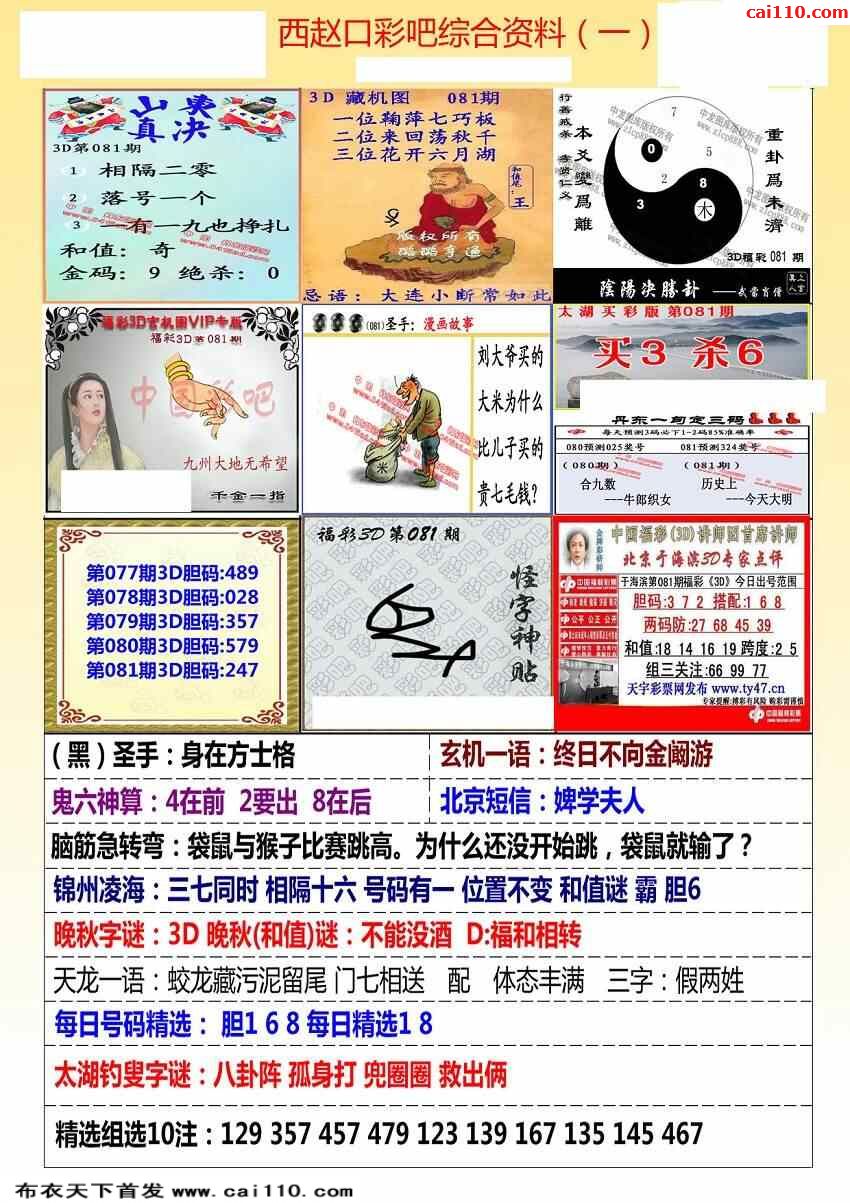 cai110.com
西赵口彩吧综合资料（一）
山东
真决
3D第081期
1 相隔二零
2 落号一个
3 一有一九也挣扎
和值：奇
金码：9 绝杀：0
3D 藏机图 081期
一位鞠萍七巧板
二位来回荡秋千
三位花开六月湖
和值尾：
王
版权所有
忌语：大连小断常如此
行善戒杀 孝贤仁义
本爻變爲離
重卦爲未濟
7
0
5
2
8
3
木
3D福彩 081 期
陰陽决勝卦 ——武當肖僧
福彩3D玄机图VIP专版
福彩3D第081期
中国彩吧
九州大地无希望
千金一指
(081)圣手：漫画故事
米
刘大爷买的
大米为什么
比儿子买的
贵七毛钱？
太湖买彩版 第081期
买3 杀6
丹东一句定三码
每天预测3码必下1-2码85%准确率
080预测025奖号 081预测324奖号
(080期) (081期)
合九数 历史上
---牛郎织女 ---今天大明
第077期3D胆码:489
第078期3D胆码:028
第079期3D胆码:357
第080期3D胆码:579
第081期3D胆码:247
福彩3D第081期
怪字神贴
中国福彩(3D)讲师团首席讲师
北京于海滨3D专家点评
中国福利彩票
于海滨第081期福彩《3D》今日出号范围
胆码:3 7 2 搭配:1 6 8
公平 公正 公开
两码防:27 68 45 39
和值:18 14 16 19 跨度:2 5
组三关注:66 99 77
天宇彩票网发布 www.ty47.cn
专家提醒:搏彩有风险 购彩需谨慎
中国福利彩票
(黑)圣手：身在方士格 玄机一语：终日不向金阚游
鬼六神算：4在前 2要出 8在后 北京短信：婢学夫人
脑筋急转弯：袋鼠与猴子比赛跳高。为什么还没开始跳，袋鼠就输了？
锦州凌海：三七同时 相隔十六 号码有一 位置不变 和值谜 霸 胆6
晚秋字谜：3D 晚秋(和值)谜：不能没酒 D:福和相转
天龙一语：蛟龙藏污泥留尾 门七相送 配 体态丰满 三字：假两姓
每日号码精选： 胆1 6 8 每日精选1 8
太湖钓叟字谜：八卦阵 孤身打 兜圈圈 救出俩
精选组选10注：129 357 457 479 123 139 167 135 145 467
布衣天下首发 www.cai110.com